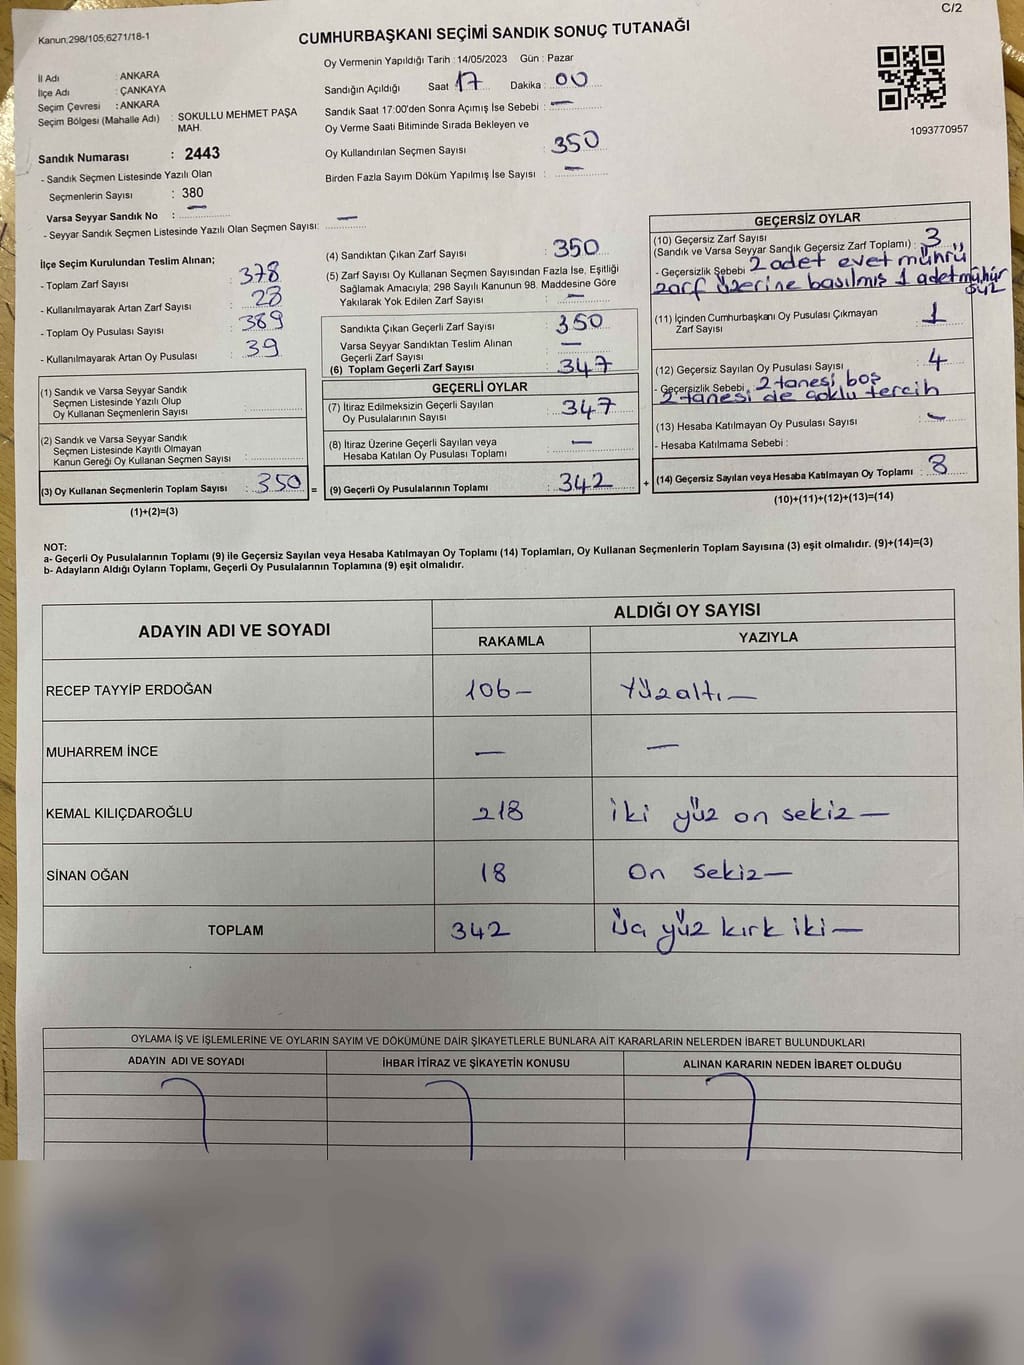 C/2
Kanun;298/105;6271/18-1
CUMHURBAŞKANI SEÇİMİ SANDIK SONUÇ TUTANAĞI
İl Adı : ANKARA
İlçe Adı : ÇANKAYA
Seçim Çevresi : ANKARA
Seçim Bölgesi (Mahalle Adı) : SOKULLU MEHMET PAŞA
MAH.
Sandık Numarası : 2443
- Sandık Seçmen Listesinde Yazılı Olan
Seçmenlerin Sayısı : 380
Varsa Seyyar Sandık No : —
- Seyyar Sandık Seçmen Listesinde Yazılı Olan Seçmen Sayısı: —
Oy Vermenin Yapıldığı Tarih : 14/05/2023 Gün : Pazar
Sandığın Açıldığı Saat 17 Dakika : 00
Sandık Saat 17:00'den Sonra Açımış İse Sebebi : —
Oy Verme Saati Bitiminde Sırada Bekleyen ve
Oy Kullandırılan Seçmen Sayısı : 350
Birden Fazla Sayım Döküm Yapılmış İse Sayısı : —
1093770957
İlçe Seçim Kurulundan Teslim Alınan;
- Toplam Zarf Sayısı : 378
- Kullanılmayarak Artan Zarf Sayısı : 28
- Toplam Oy Pusulası Sayısı : 389
- Kullanılmayarak Artan Oy Pusulası : 39
(1) Sandık ve Varsa Seyyar Sandık
Seçmen Listesinde Yazılı Olup
Oy Kullanan Seçmenlerin Sayısı :
(2) Sandık ve Varsa Seyyar Sandık
Seçmen Listesinde Kayıtlı Olmayan
Kanun Gereği Oy Kullanan Seçmen Sayısı :
(3) Oy Kullanan Seçmenlerin Toplam Sayısı : 350 =
(1)+(2)=(3)
(4) Sandıktan Çıkan Zarf Sayısı : 350
(5) Zarf Sayısı Oy Kullanan Seçmen Sayısından Fazla İse, Eşitliği
Sağlamak Amacıyla; 298 Sayılı Kanunun 98. Maddesine Göre
Yakılarak Yok Edilen Zarf Sayısı : —
Sandıkta Çıkan Geçerli Zarf Sayısı : 350
Varsa Seyyar Sandıktan Teslim Alınan
Geçerli Zarf Sayısı : —
(6) Toplam Geçerli Zarf Sayısı : 347
GEÇERLİ OYLAR
(7) İtiraz Edilmeksizin Geçerli Sayılan
Oy Pusulalarının Sayısı : 347
(8) İtiraz Üzerine Geçerli Sayılan veya
Hesaba Katılan Oy Pusulası Toplamı : —
(9) Geçerli Oy Pusulalarının Toplamı : 342 +
GEÇERSİZ OYLAR
(10) Geçersiz Zarf Sayısı
(Sandık ve Varsa Seyyar Sandık Geçersiz Zarf Toplamı) : 3
- Geçersizlik Sebebi 2 adet evet mührü
zarf üzerine basılmış 1 adet mühür
süz
(11) İçinden Cumhurbaşkanı Oy Pusulası Çıkmayan
Zarf Sayısı : 1
(12) Geçersiz Sayılan Oy Pusulası Sayısı : 4
- Geçersizlik Sebebi : 2 tanesi boş
2 tanesi de çoklu tercih
(13) Hesaba Katılmayan Oy Pusulası Sayısı : —
- Hesaba Katılmama Sebebi :
(14) Geçersiz Sayılan veya Hesaba Katılmayan Oy Toplamı : 8
(10)+(11)+(12)+(13)=(14)
NOT:
a- Geçerli Oy Pusulalarının Toplamı (9) ile Geçersiz Sayılan veya Hesaba Katılmayan Oy Toplamı (14) Toplamları, Oy Kullanan Seçmenlerin Toplam Sayısına (3) eşit olmalıdır. (9)+(14)=(3)
b- Adayların Aldığı Oyların Toplamı, Geçerli Oy Pusulalarının Toplamına (9) eşit olmalıdır.
ADAYIN ADI VE SOYADI ALDIĞI OY SAYISI
RAKAMLA YAZIYLA
RECEP TAYYİP ERDOĞAN 106— Yüzaltı—
MUHARREM İNCE — —
KEMAL KILIÇDAROĞLU 218 iki yüz on sekiz—
SİNAN OĞAN 18 On sekiz—
TOPLAM 342 üç yüz kırk iki—
OYLAMA İŞ VE İŞLEMLERİNE VE OYLARIN SAYIM VE DÖKÜMÜNE DAİR ŞİKAYETLERLE BUNLARA AİT KARARLARIN NELERDEN İBARET BULUNDUKLARI
ADAYIN ADI VE SOYADI İHBAR İTİRAZ VE ŞİKAYETİN KONUSU ALINAN KARARIN NEDEN İBARET OLDUĞU